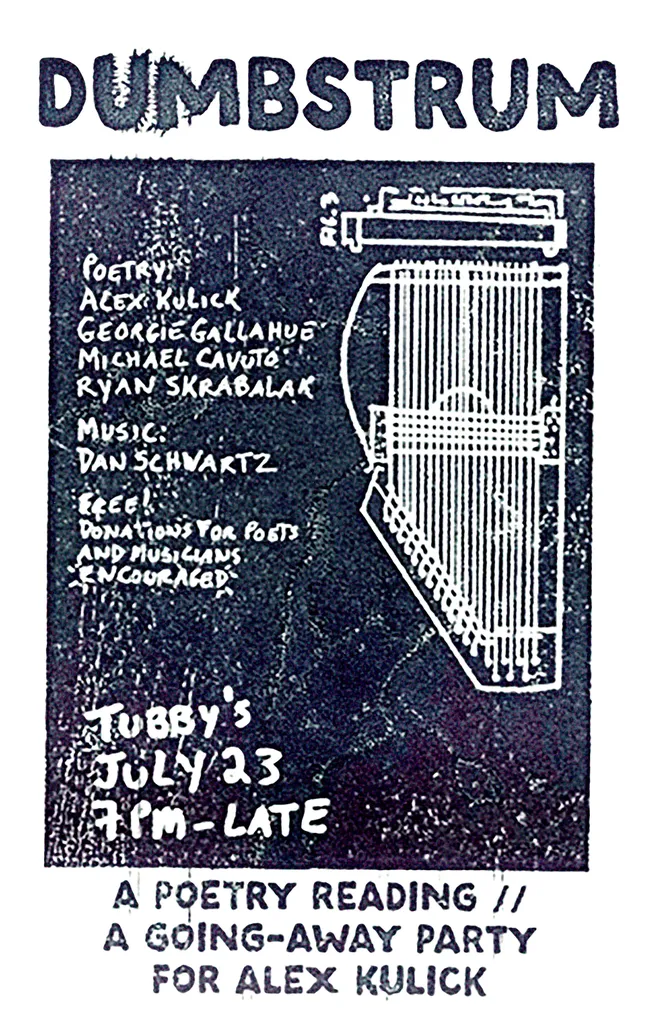 DUMBSTRUM
POETRY:
ALEX KULICK
GEORGIE GALLAHUE
MICHAEL CAVUTO
RYAN SKRABALAK
MUSIC:
DAN SCHWARTZ
FREE!
DONATIONS FOR POETS
AND MUSICIANS
ENCOURAGED
TUBBY'S
JULY 23
7PM-LATE
A POETRY READING //
A GOING-AWAY PARTY
FOR ALEX KULICK